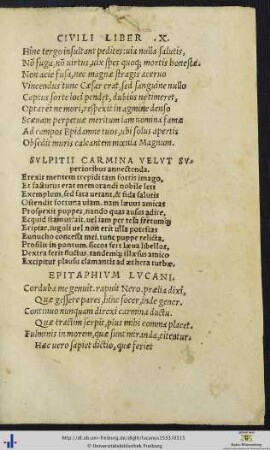 CIVILI LIBER .X.
Hinc tergo insultant pedites: uia nulla salutis,
Nō fuga, nō uirtus, uix spes quoq; mortis honestæ.
Non acie fusa, nec magnæ stragis aceruo
Vincendus tunc Cæsar erat, sed sanguine nullo
Captus sorte loci pendet, dubius ne timeret,
Optaret ne mori, respexit in agmine denso
Scæuam perpetuæ meritum iam nomina famæ
Ad campos Epidamne tuos, ubi solus apertis
Obsedit muris calcantem mœnia Magnum.
SVLPITII CARMINA VELVT SV-
perioribus annectenda.
Erexit mentem trepidi tam fortis imago,
Et facturus erat memorandi nobile leti
Exemplum, sed fata uetant, & fida salutis
Ostendit fortuna uiam. nam læuus amicas
Prospexit puppes, nando quas ausus adire,
Ecquid stamus? ait. uel iam per tela fretumq;
Eripiar, iuguli uel non erit ulla potestas
Eunucho concessa mei. tunc puppe relicta,
Prosilit in pontum. siccos fert læua libellos,
Dextra secat fluctus. tandemq; illæsus amico
Excipitur plausu clamantis ad æthera turbæ.
EPITAPHIVM LVCANI.
Corduba me genuit. rapuit Nero. prælia dixi,
Quæ gessere pares, hinc socer, inde gener.
Continuo nunquam direxi carmina ductu.
Quæ tractim serpit, plus mihi comma placet.
Fulminis in morem, quæ sunt miranda, citentur,
Hæc uero sapiet dictio, quæ feriet
http://dl.ub.uni-freiburg.de/diglit/lucanus1535/0315
© Universitätsbibliothek Freiburg
Baden-Württemberg